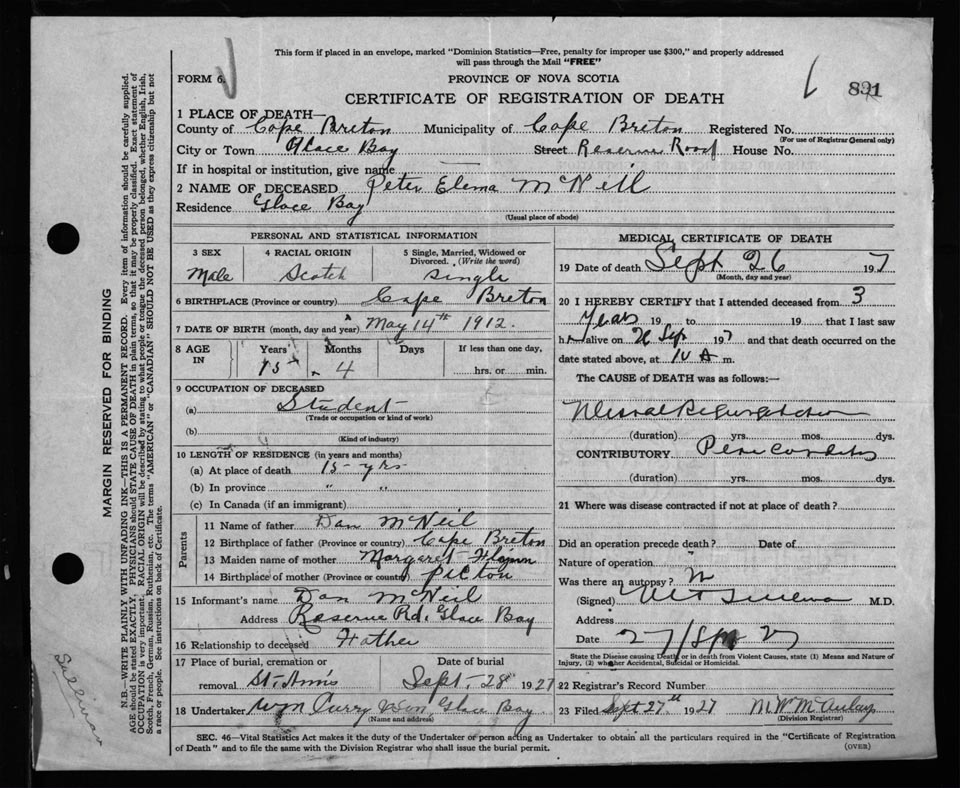 This form if placed in an envelope, marked "Dominion Statistics—Free, penalty for improper use $300," and properly addressed
will pass through the Mail "FREE"
FORM 6.
PROVINCE OF NOVA SCOTIA
CERTIFICATE OF REGISTRATION OF DEATH
891
1 PLACE OF DEATH—
County of Cape Breton Municipality of Cape Breton Registered No.
(For use of Registrar General only)
City or Town Glace Bay Street Reserve Road House No.
If in hospital or institution, give name
2 NAME OF DECEASED Peter Elema McNeil
Residence Glace Bay
(Usual place of abode)
PERSONAL AND STATISTICAL INFORMATION
3 SEX 4 RACIAL ORIGIN 5 Single, Married, Widowed or Divorced. (Write the word)
Male Scotch Single
6 BIRTHPLACE (Province or country) Cape Breton
7 DATE OF BIRTH (month, day and year) May 14th 1912.
8 AGE IN Years Months Days If less than one day,
15 4 hrs. or min.
9 OCCUPATION OF DECEASED
(a) Student
(Trade or occupation or kind of work)
(b)
(Kind of industry)
10 LENGTH OF RESIDENCE (in years and months)
(a) At place of death 15 yrs
(b) In province " "
(c) In Canada (if an immigrant)
Parents
11 Name of father Dan McNeil
12 Birthplace of father (Province or country) Cape Breton
13 Maiden name of mother Margaret Flynn
14 Birthplace of mother (Province or country) Picton
15 Informant's name Dan McNeil
Address Reserve Rd. Glace Bay
16 Relationship to deceased Father
17 Place of burial, cremation or removal St. Ann's
Date of burial Sept. 28 1927
18 Undertaker Wm Curry & Son Glace Bay
(Name and address)
MEDICAL CERTIFICATE OF DEATH
19 Date of death Sept 26 1927
(Month, day and year)
20 I HEREBY CERTIFY that I attended deceased from 3
Years 19 to 19 that I last saw
h alive on 26 Sep 1927 and that death occurred on the
date stated above, at 10 A m.
The CAUSE of DEATH was as follows:—
Regurgitation
(duration) yrs. mos. dys.
CONTRIBUTORY Pericarditis
(duration) yrs. mos. dys.
21 Where was disease contracted if not at place of death?
Did an operation precede death? Date of
Nature of operation
Was there an autopsy? N
(Signed) M.D.
Address
Date 27/Sep 27
State the Disease causing Death, or in death from Violent Causes, state (1) Means and Nature of
Injury, (2) whether Accidental, Suicidal or Homicidal.
22 Registrar's Record Number
23 Filed Sept 27th 1927 M. W. McAulay
(Division Registrar)
SEC. 46—Vital Statistics Act makes it the duty of the Undertaker or person acting as Undertaker to obtain all the particulars required in the "Certificate of Registration
of Death" and to file the same with the Division Registrar who shall issue the burial permit.
(OVER)
MARGIN RESERVED FOR BINDING
N.B.—WRITE PLAINLY WITH UNFADING INK—THIS IS A PERMANENT RECORD. Every item of information should be carefully supplied.
AGE should be stated EXACTLY, PHYSICIANS should STATE CAUSE OF DEATH in plain terms, so that it may be properly classified. Exact statement of
OCCUPATION is very important. RACIAL ORIGIN will be described by stating to what people or tongue the deceased person belonged, whether English, Irish,
Scotch, French, German, Russian, Ruthenian, etc. The terms "AMERICAN" or "CANADIAN" SHOULD NOT BE USED as they express citizenship but not
a race or people. See instructions on back of Certificate.
Sullivan